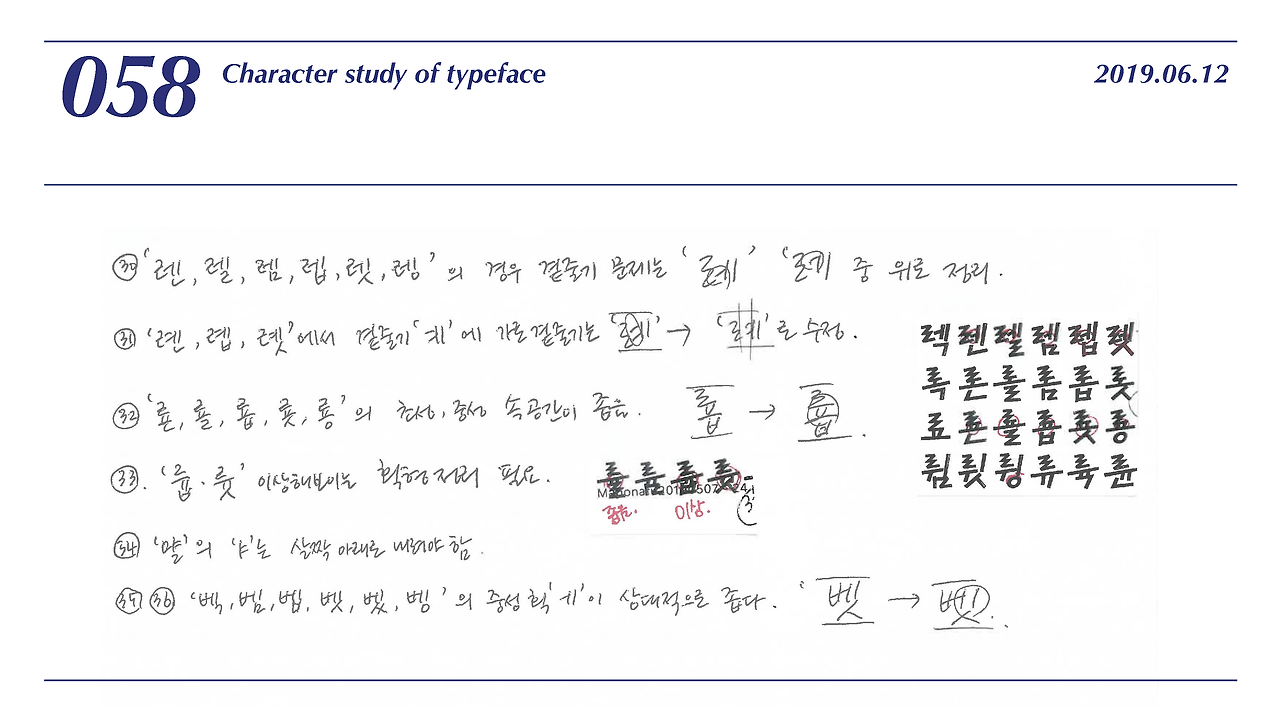 058 Character study of typeface
2019.06.12
㉚ '렌, 렐, 렘, 렙, 렛, 렝' 의 경우 곁줄기 문제는 '레' '레' 중 위로 정리.
㉛ '롄, 롑, 롓'에서 곁줄기 'ㅖ'에 가로 곁줄기는 '례' → '례'로 수정.
㉜ '룐, 룔, 룝, 룟, 룡'의 초성, 중성 속공간이 좁음. 룝 → 룝.
㉝. '륩 · 륫' 이상해보이는 획형정리 필요.
㉞ '먈'의 'ㅑ'는 살짝 아래로 내려야 함.
㉟ ㊱ '벡, 벰, 벱, 벳, 벴, 벵' 의 중성 획 'ㅔ'이 상대적으로 좁다. '벳 → 벳.
렉 렌 렐 렘 렙 렛
록 론 롤 롬 롭 롯
료 룐 룔 룝 룟 룡
륌 륏 륑 류 륙 륜
률 륨 륩 륫
좁음. 이상.